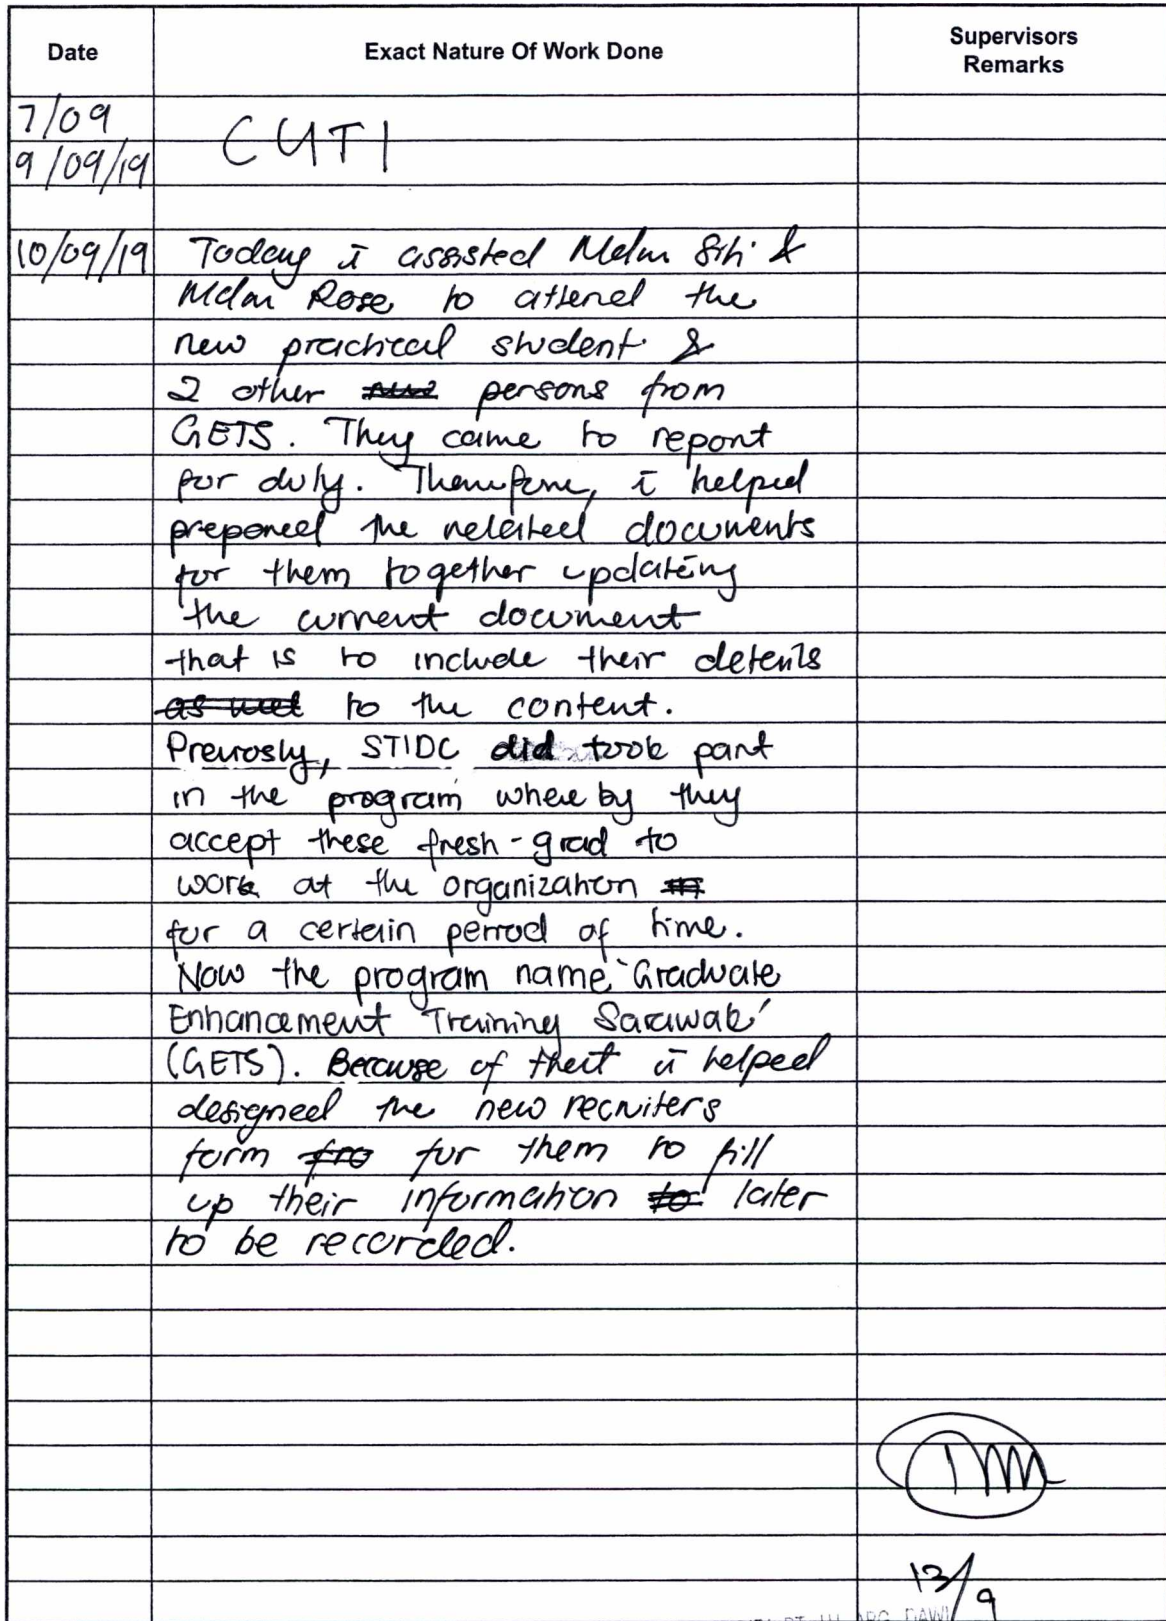 Date Exact Nature Of Work Done Supervisors Remarks
7/09
9/09/19 CUTI
10/09/19 Today i assisted Mdm Siti &
Mdm Rose to attend the
new practical student &
2 other persons from
GETS. They came to report
for duty. Therefore, i helped
prepared the related documents
for them together updating
the current document
that is to include their details
as well to the content.
Previosly, STIDC did took part
in the program where by they
accept these fresh-grad to
work at the organization
for a certain period of time.
Now the program name 'Graduate
Enhancement Training Sarawak'
(GETS). Because of that i helped
designed the new recruiters
form fro for them to fill
up their information to later
to be recorded.
13/9